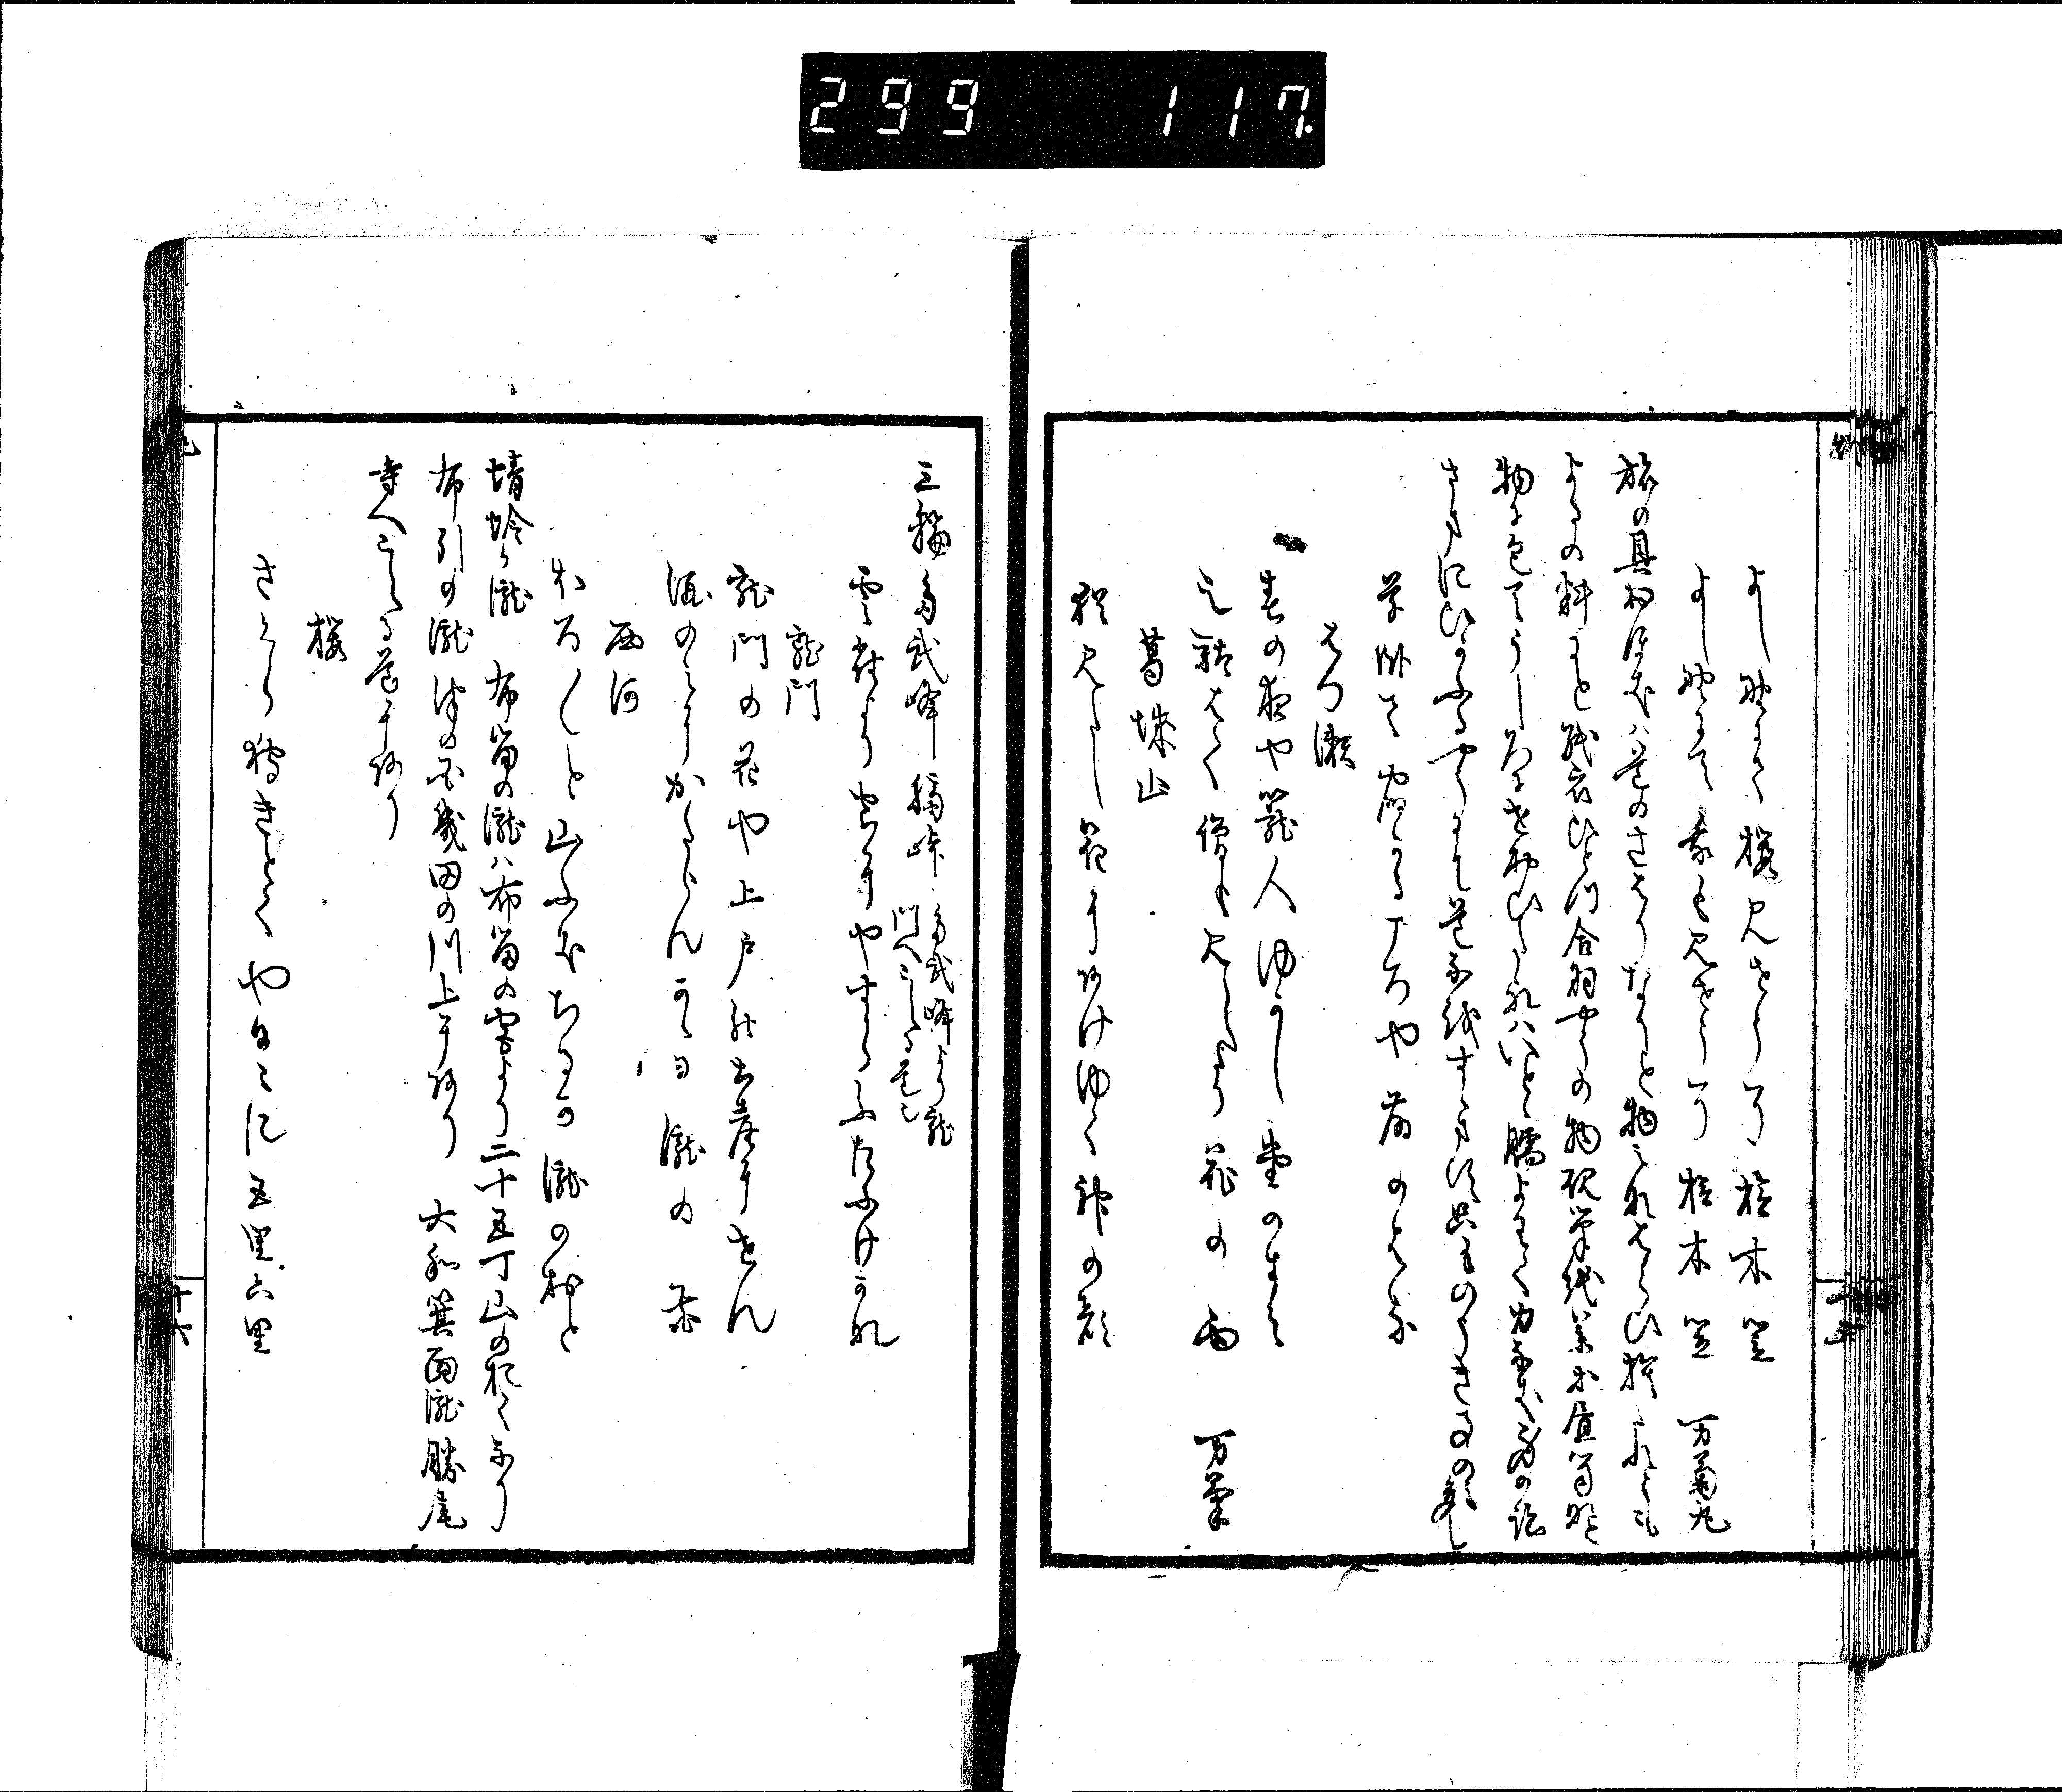 299 117
よし野にて櫻見せうそ檜木笠
よし野にて我も見せうそ檜木笠 万菊丸
旅の具多きハ道のさはりなりと物みなはらひ捨たれとも
よるの料にと紙衣ひとつ合羽やうの物硯筆紙薬等昼笥なと
物に包てうしろにせおひたれハいとゝ臑よわく力なき身の跡
さまにひかふるやうにて道猶すゝますたゝものうき事のみ多し
草臥て宿かる比や藤のはな
はつ瀬
春の夜や籠人ゆかし堂のすみ
足駄はく僧も見えたり花の雨 万菊
葛城山
猶見たし花に明行く神の顔
三輪 多武峰 臍峠 多武峰より龍
門へこゆる道也
雲雀より空にやすらふたふけかな
龍門
龍門の花や上戸の土産にせん
酒のみにかたらんかゝる瀧の花
西河
ほろ〳〵と山ふきちるか瀧のおと
蜻蛉か瀧 布留の瀧ハ布留の宮より二十五丁山の奥なり
布引の瀧 津の国幾田の川上にあり 大和 箕面瀧 勝尾
寺へこゆる道にあり
櫻
さくら狩きとくや日ゝに五里六里
十六